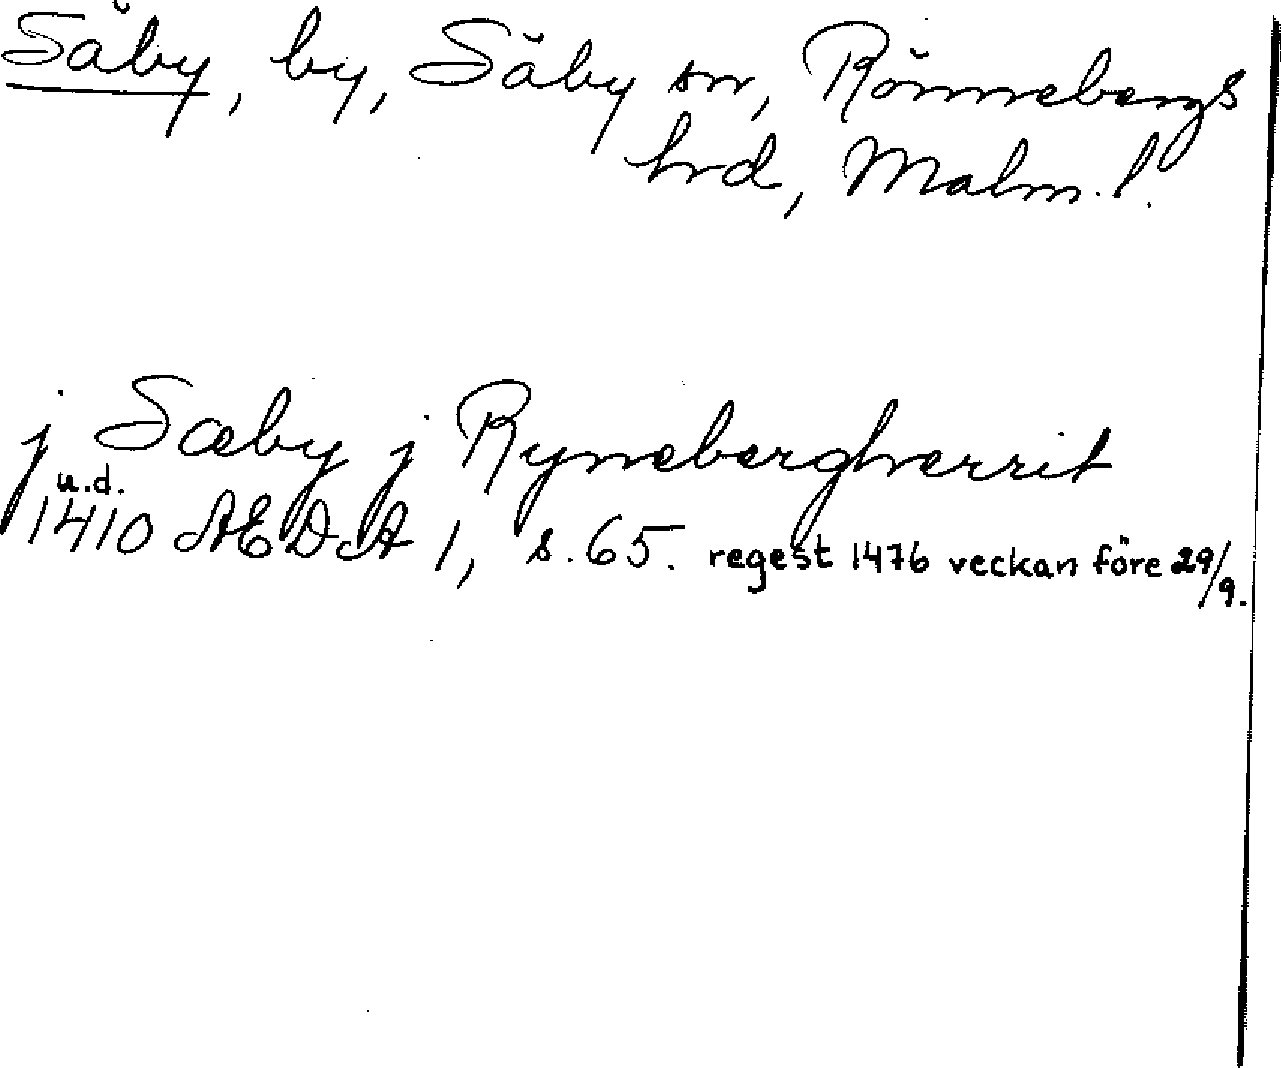 Säby, by, Säby sn, Rönnebergs
hrd, Malm. l.
j Sæby j Rynebergherrit
u.d.
1410 ÆDA 1, s. 65. regest 1476 veckan före 29/9.